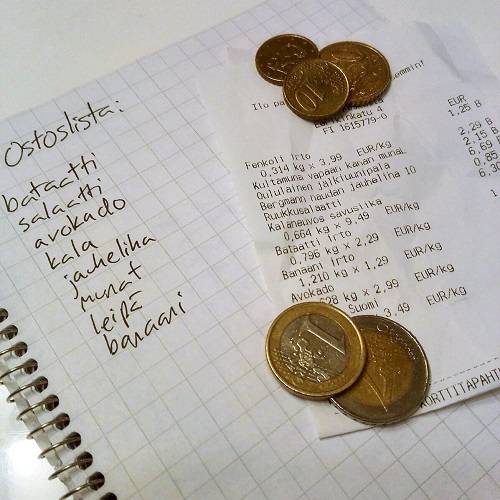 Ostoslista:
bataatti
salaatti
avokado
kala
jauheliha
munat
leipä
banaani
Ilo pa
emmin!
katu 4
FI 1615779-0
EUR
Fenkoli Irto 1,25 B
0,314 kg x 3,99 EUR/kg
Kultamuna vapaan kanan munaL 2,29 B
Oululainen jälkiuunipala 2,15 B
Bergmann naudan jauheliha 10 6,69
Ruukkusalaatti 0,85
Kalaneuvos savusiika 6,30
0,664 kg x 9,49 EUR/kg
Bataatti Irto
0,796 kg x 2,29 EUR/kg
Banaani Irto
1,210 kg x 1,29 EUR/kg
Avokado
528 kg x 2,99 EUR/kg
Suomi
3,49 EUR/kg
KORTTITAPAHT
10
1